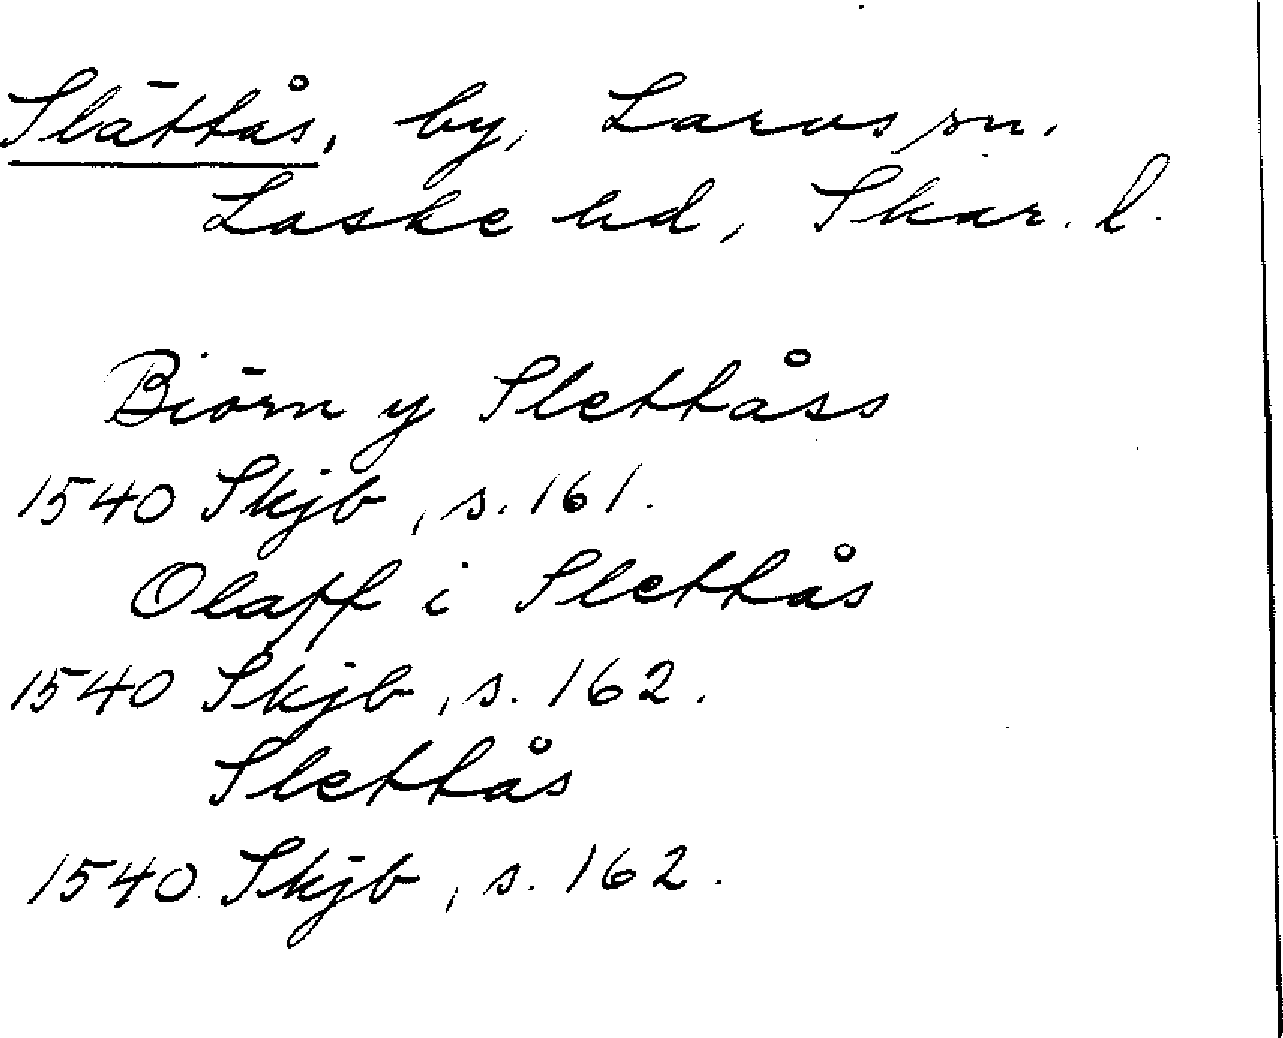 Slättås, by, Larvs sn.
Laske hd, Skar. l.
Biörn y Slettåss
1540 Skjb, s. 161.
Olaff i Slettås
1540 Skjb, s. 162.
Slettås
1540 Skjb, s. 162.